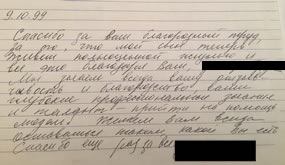 9.10.99
Спасибо за ваш благородный труд,
за то, что мой сын теперь
живет полноценной жизнью и
все это благодаря Вам,
Мы знаем всегда вашу отзыв-
чивость и благородство, ваши
глубокие профессиональные знания
и талант прийти на помощь
людям. Желаем Вам всегда
оставаться таким, какой Вы есть
Спасибо ещё раз за все